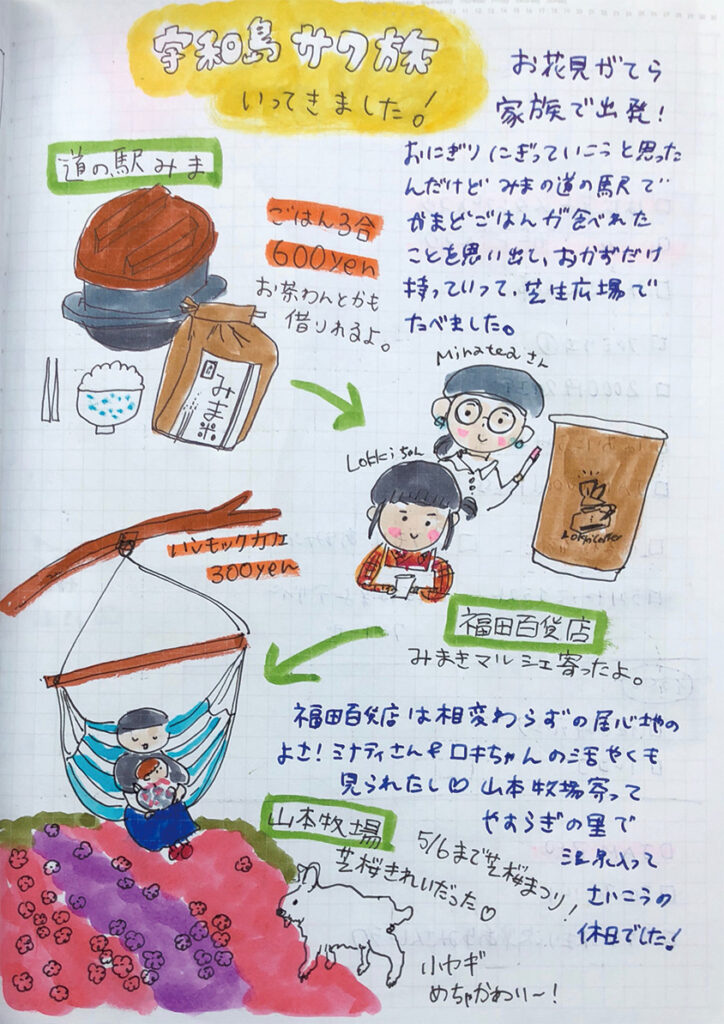 宇和島サク旅
いってきました!
お花見がてら
家族で出発!
道の駅みま
おにぎりにぎっていこうと思った
んだけど みまの道の駅で
かまどごはんが食べれた
ことを思い出して、おかずだけ
持っていって、芝生広場で
たべました。
ごはん3合
600yen
お茶わんとかも
借りれるよ。
みま米
Minateaさん
Lokkiちゃん
Lokki coffee
ハンモックカフェ
300yen
福田百貨店
みまきマルシェ寄ったよ。
福田百貨店は相変わらずの居心地の
よさ!ミナティさん&ロキちゃんの活やくも
見られたし♡ 山本牧場寄って
やすらぎの里で
温泉入って
さいこうの
休日でした!
山本牧場
芝桜きれいだった♡
5/6まで芝桜まつり!
小ヤギ
めちゃかわいー!